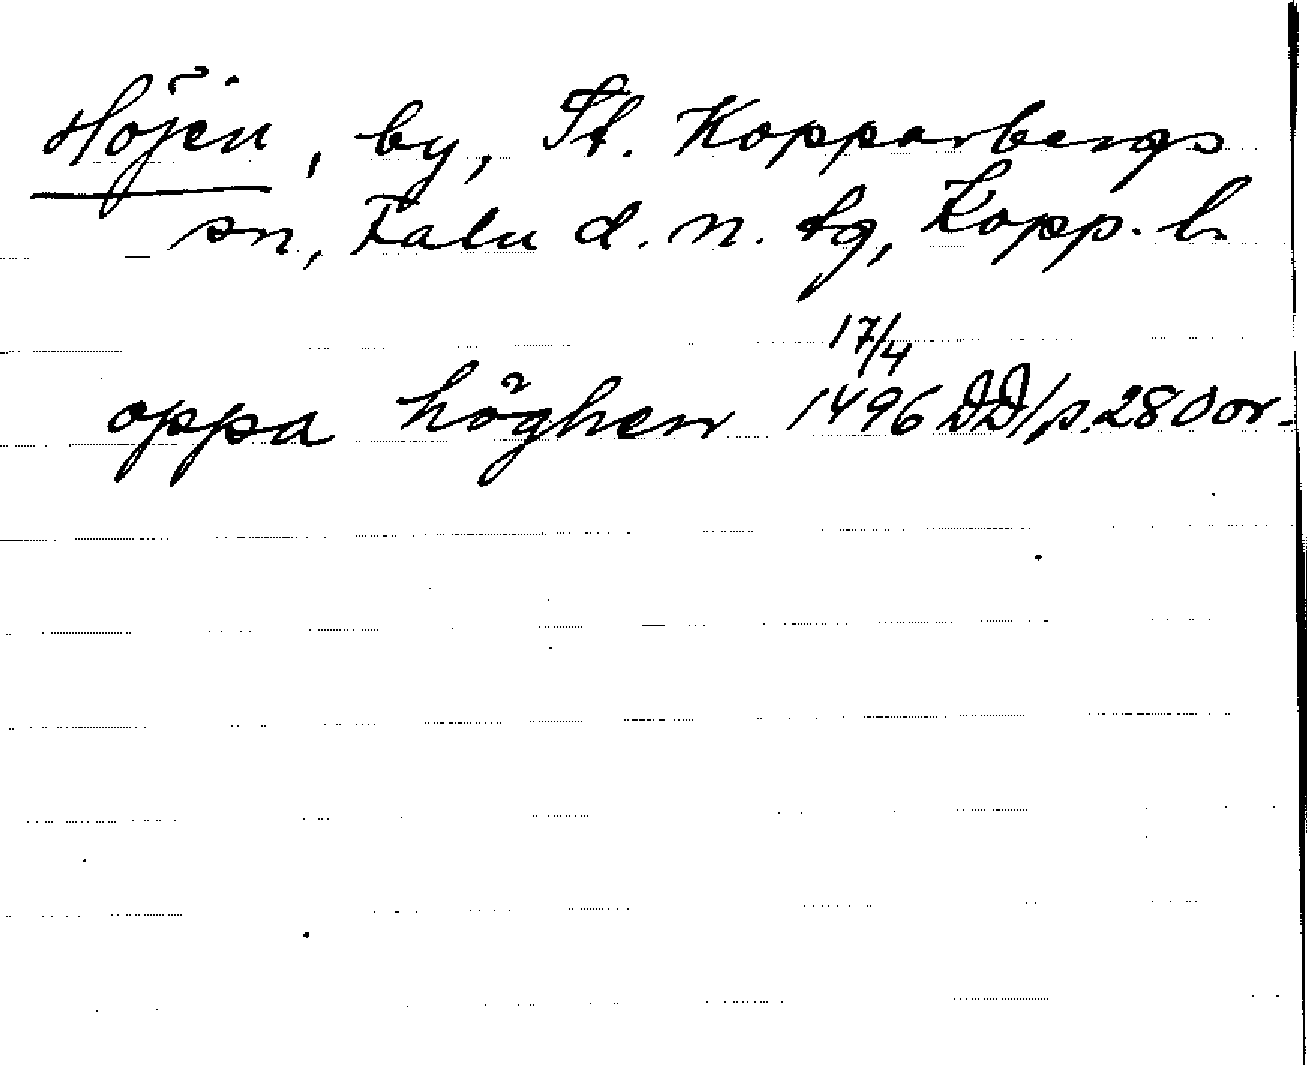 Höjen, by, St. Kopparbergs
sn, Falu d. n. tg, Kopp. l.
oppa höghen 17/4 1496 DD/s. 280 or.